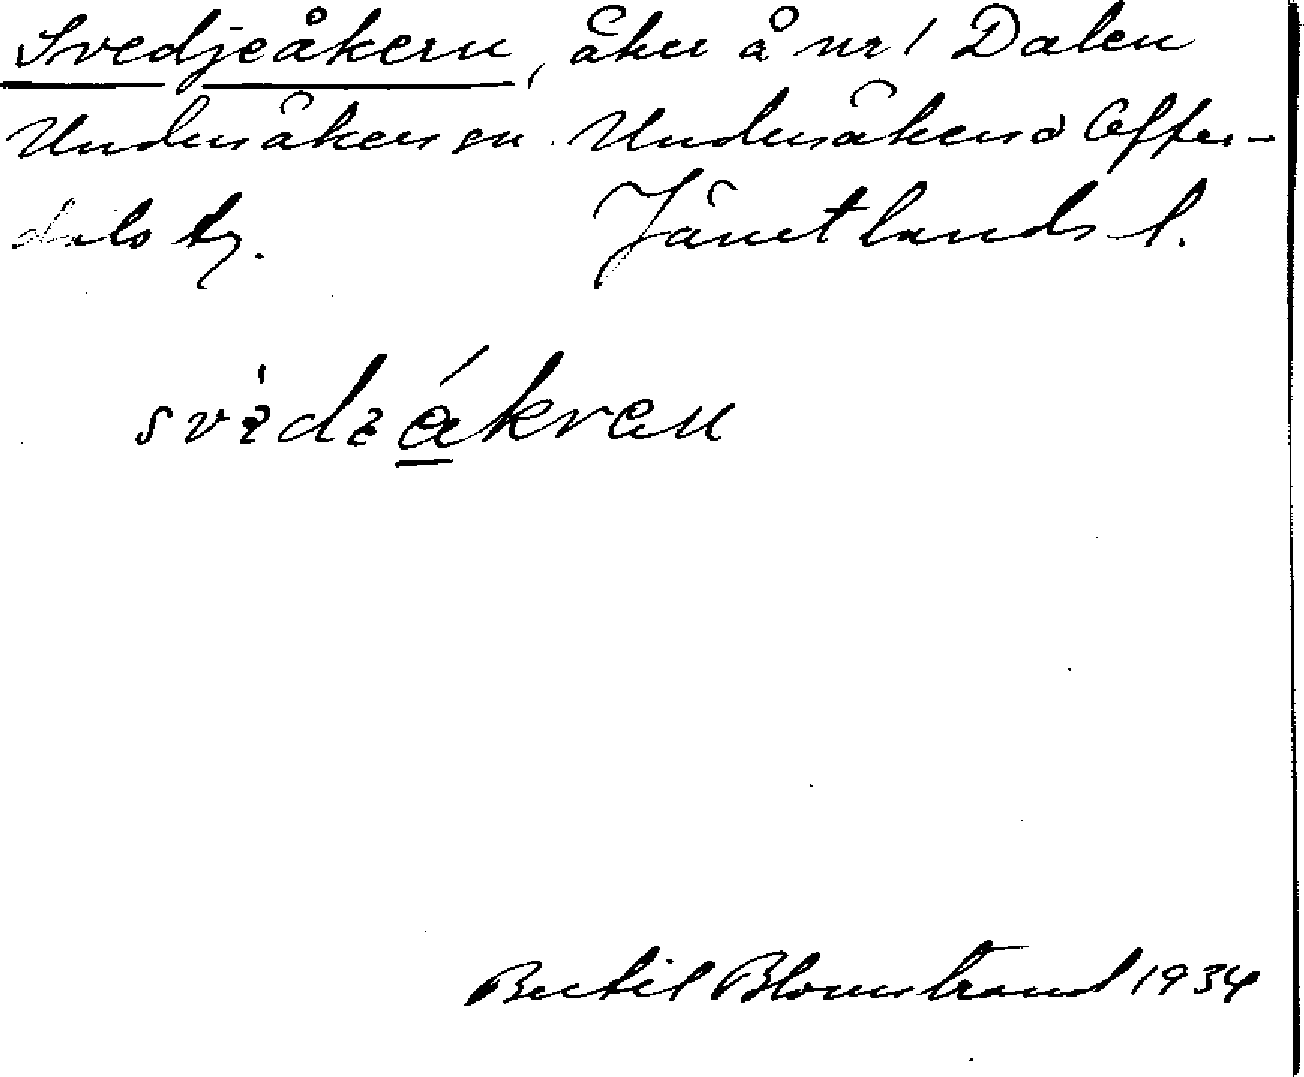 Svedjeåkern, åker å nr 1 Dalen
Undersåkers sn. Undersåkers o Offer-
dals tg. Jämtlands l.
Bertil Blomstrand 1934